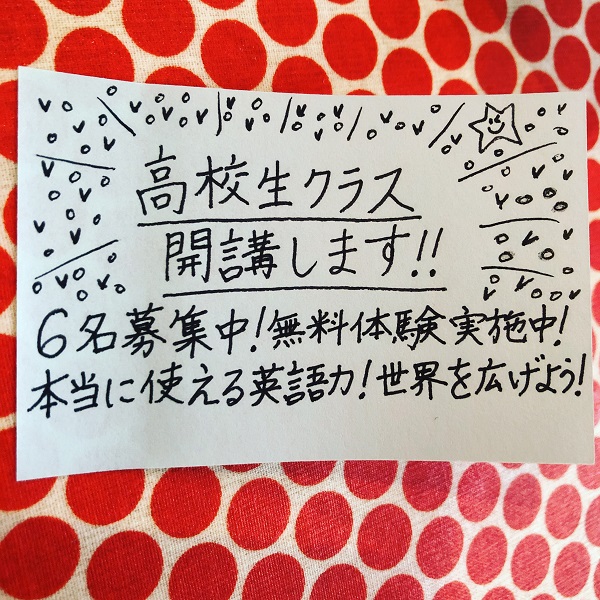 高校生クラス
開講します!!
6名募集中!無料体験実施中!
本当に使える英語力!世界を広げよう!